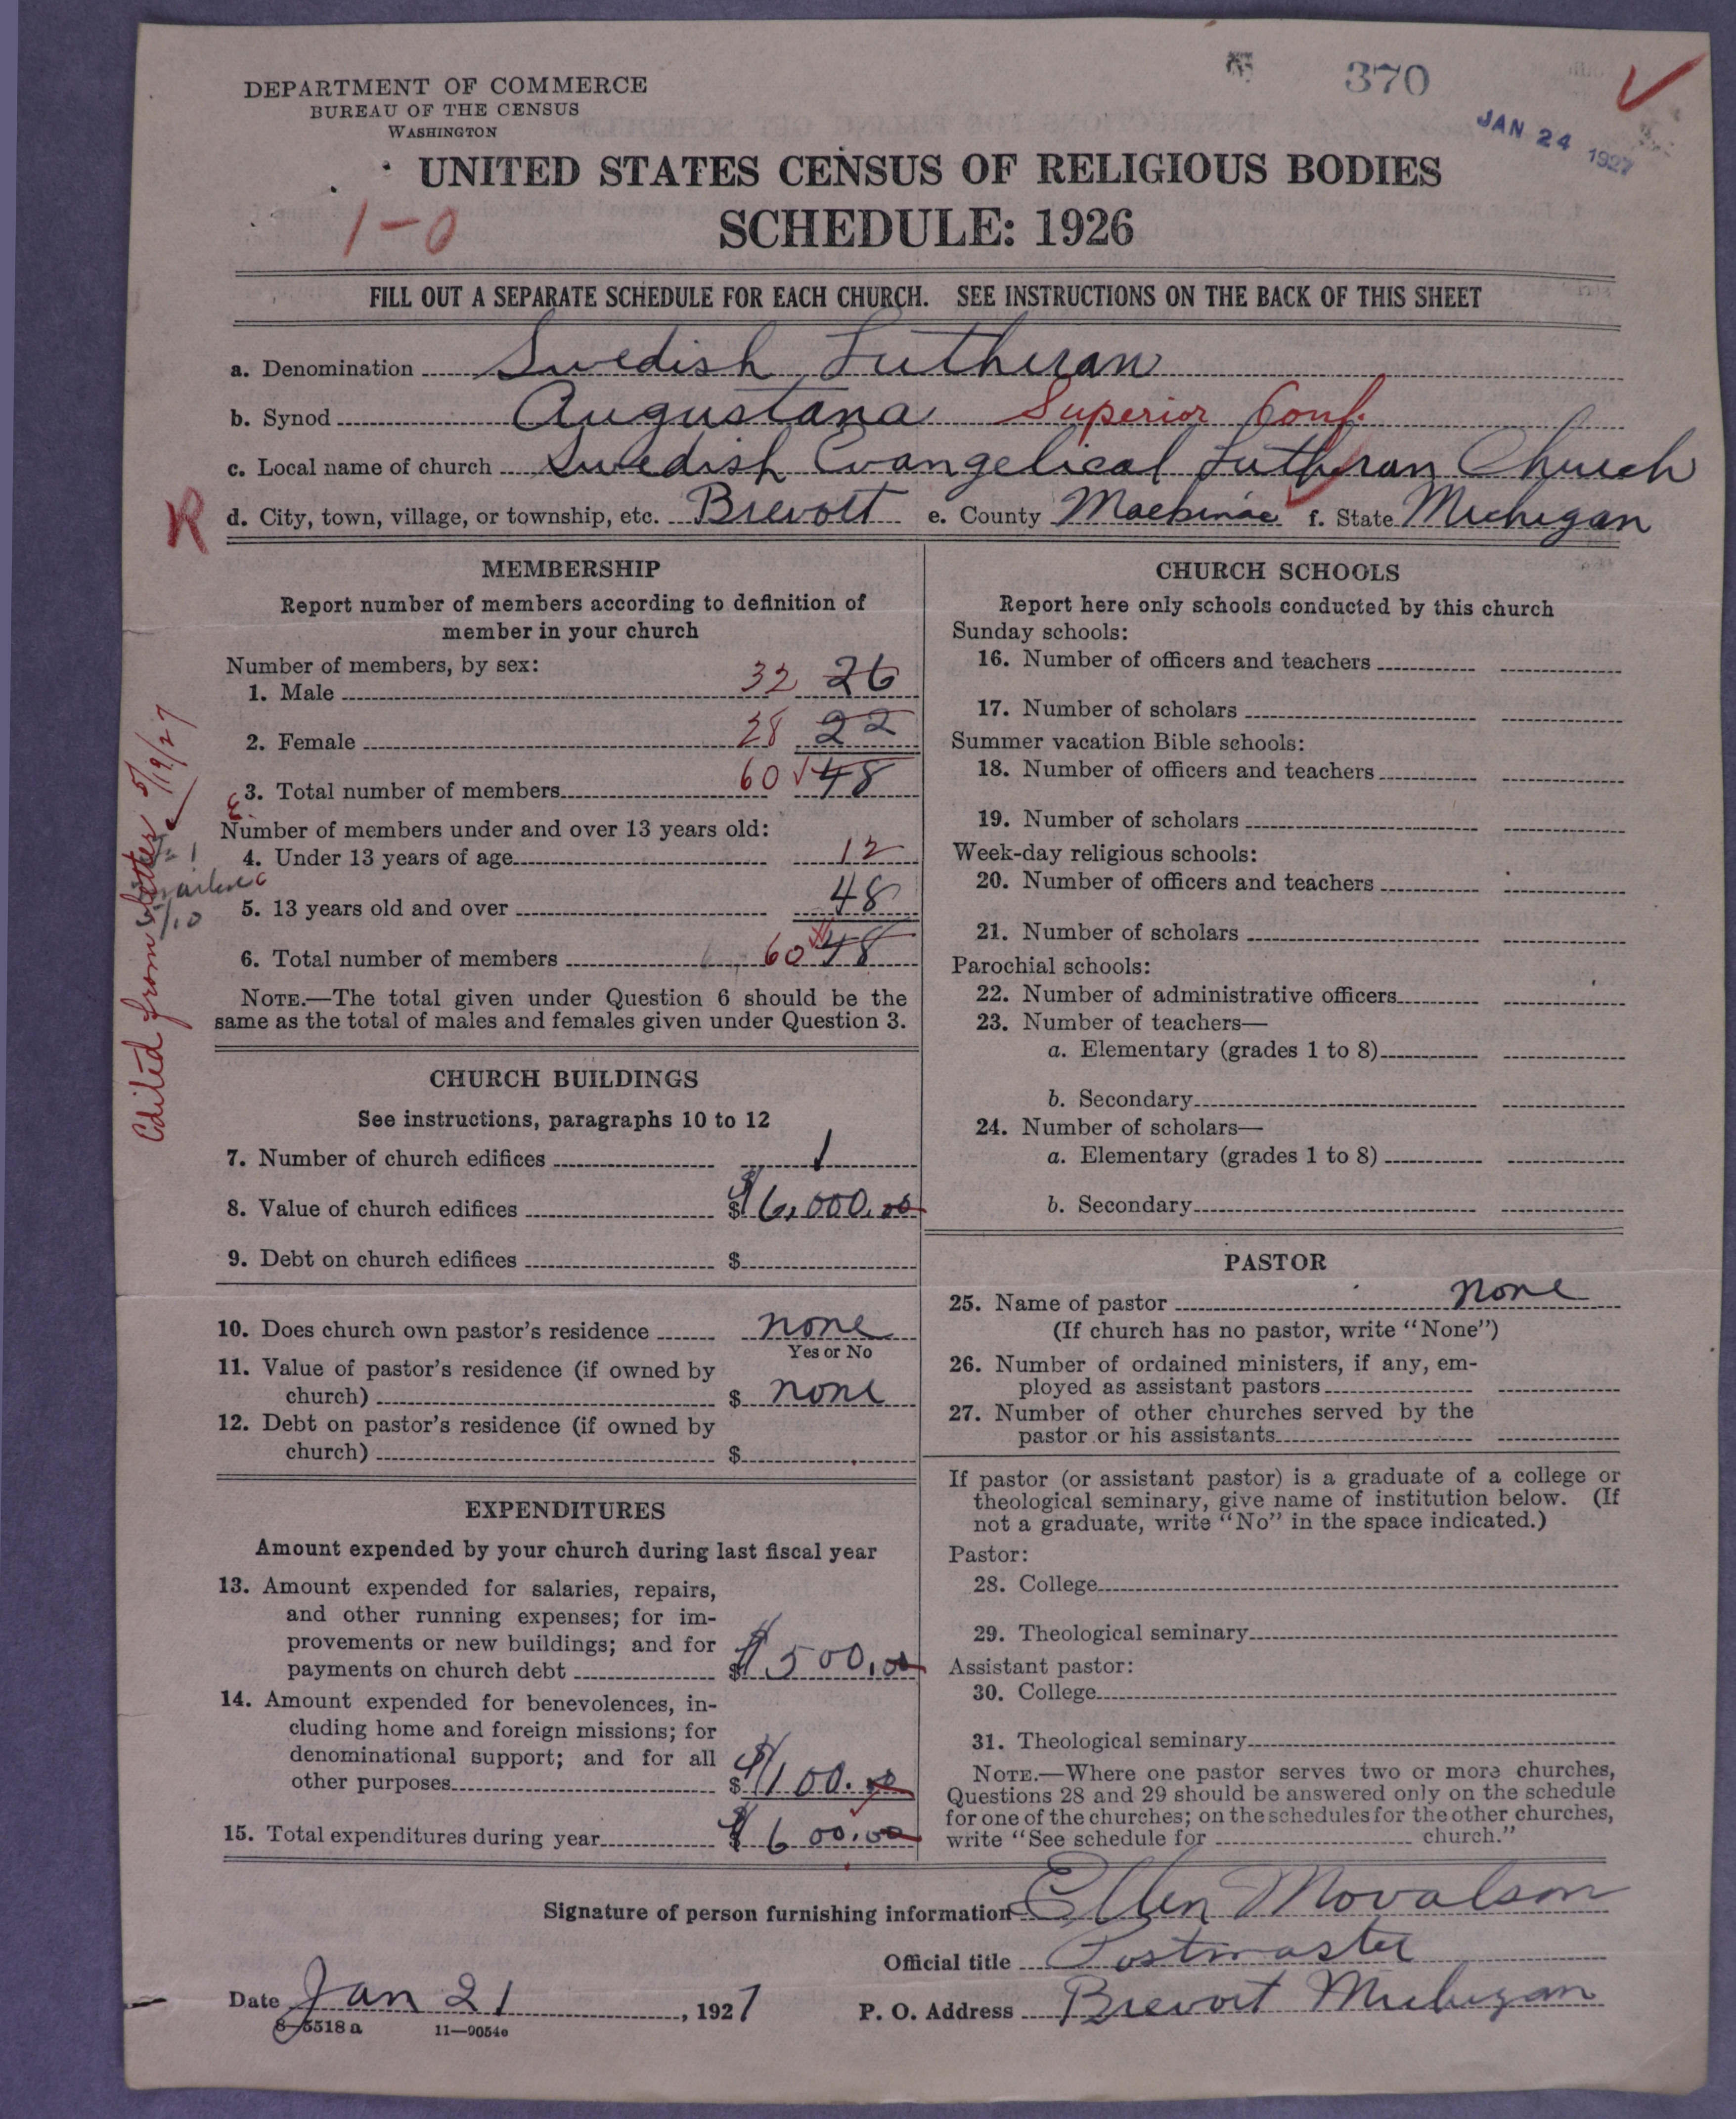 370
JAN 24 1927
DEPARTMENT OF COMMERCE
BUREAU OF THE CENSUS
WASHINGTON
UNITED STATES CENSUS OF RELIGIOUS BODIES
1-0
SCHEDULE: 1926
FILL OUT A SEPARATE SCHEDULE FOR EACH CHURCH. SEE INSTRUCTIONS ON THE BACK OF THIS SHEET
a. Denomination Swedish Lutheran
b. Synod Augustana Superior Conf.
c. Local name of church Swedish Evangelical Lutheran Church
R d. City, town, village, or township, etc. Brevort e. County Mackinac f. State Michigan
MEMBERSHIP
Report number of members according to definition of
member in your church
Number of members, by sex:
1. Male 32 26
2. Female 28 22
3. Total number of members 60 48
Number of members under and over 13 years old:
4. Under 13 years of age 12
5. 13 years old and over 48
6. Total number of members 60 48
NOTE.—The total given under Question 6 should be the
same as the total of males and females given under Question 3.
Edited from letter 5/19/27
5/10
CHURCH BUILDINGS
See instructions, paragraphs 10 to 12
7. Number of church edifices 1
8. Value of church edifices $ $6,000.00
9. Debt on church edifices $
10. Does church own pastor's residence none
Yes or No
11. Value of pastor's residence (if owned by
church) $ none
12. Debt on pastor's residence (if owned by
church) $
EXPENDITURES
Amount expended by your church during last fiscal year
13. Amount expended for salaries, repairs,
and other running expenses; for im-
provements or new buildings; and for
payments on church debt $ $500.00
14. Amount expended for benevolences, in-
cluding home and foreign missions; for
denominational support; and for all
other purposes $ $100.00
15. Total expenditures during year $ $600.00
CHURCH SCHOOLS
Report here only schools conducted by this church
Sunday schools:
16. Number of officers and teachers
17. Number of scholars
Summer vacation Bible schools:
18. Number of officers and teachers
19. Number of scholars
Week-day religious schools:
20. Number of officers and teachers
21. Number of scholars
Parochial schools:
22. Number of administrative officers
23. Number of teachers—
a. Elementary (grades 1 to 8)
b. Secondary
24. Number of scholars—
a. Elementary (grades 1 to 8)
b. Secondary
PASTOR
25. Name of pastor none
(If church has no pastor, write "None")
26. Number of ordained ministers, if any, em-
ployed as assistant pastors
27. Number of other churches served by the
pastor or his assistants
If pastor (or assistant pastor) is a graduate of a college or
theological seminary, give name of institution below. (If
not a graduate, write "No" in the space indicated.)
Pastor:
28. College
29. Theological seminary
Assistant pastor:
30. College
31. Theological seminary
NOTE.—Where one pastor serves two or more churches,
Questions 28 and 29 should be answered only on the schedule
for one of the churches; on the schedules for the other churches,
write "See schedule for church."
Signature of person furnishing information Ellen Movalson
Official title Postmaster
Date Jan 21, 1927 P. O. Address Brevort Michigan
8-5518 a 11-9054e